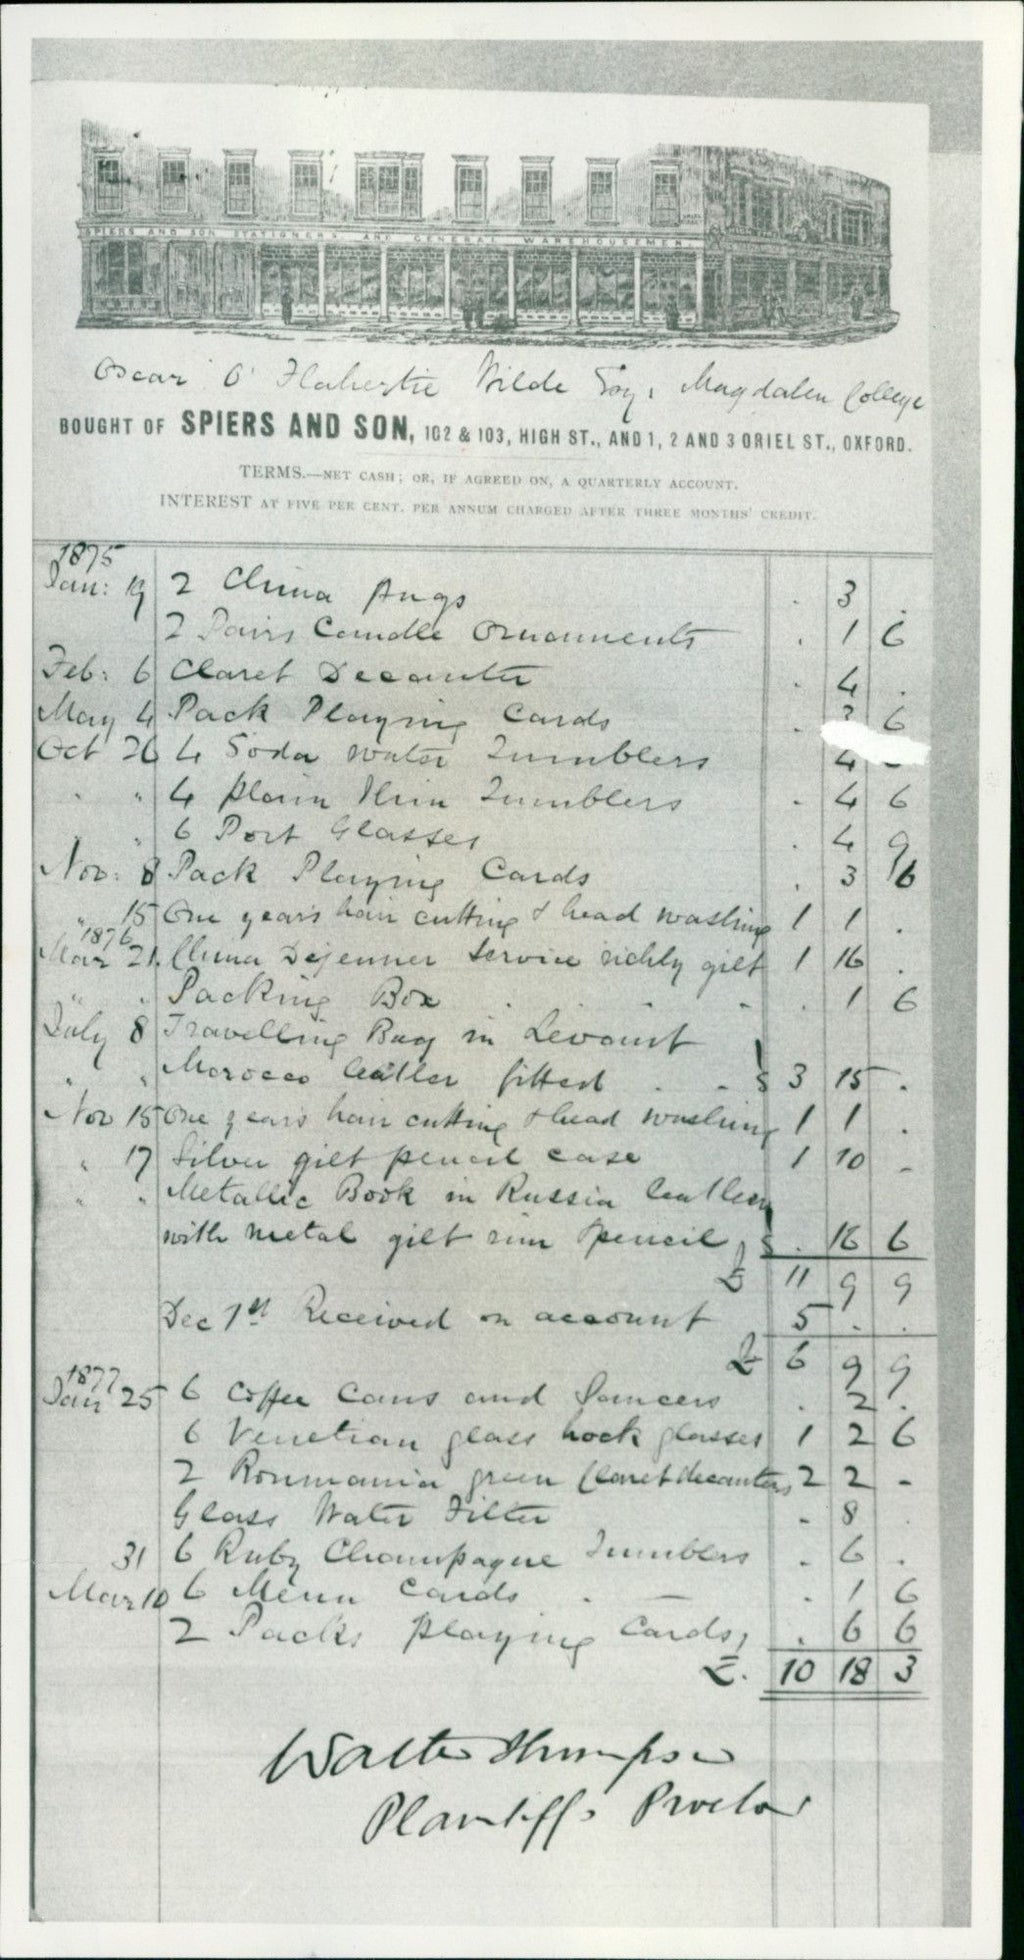 SPIERS AND SON STATIONERS AND GENERAL WAREHOUSEMEN
Oscar O'Flahertie Wilde Esq, Magdalen College
BOUGHT OF SPIERS AND SON, 102 & 103, HIGH ST., AND 1, 2 AND 3 ORIEL ST., OXFORD.
TERMS.—NET CASH; OR, IF AGREED ON, A QUARTERLY ACCOUNT.
INTEREST AT FIVE PER CENT. PER ANNUM CHARGED AFTER THREE MONTHS' CREDIT.
1875
Jan: 19 2 China Mugs . 3 .
2 Pairs Candle Ornaments . 1 6
Feb: 6 Claret Decanter . 4 .
May 4 Pack Playing Cards . 3 6
Oct 26 4 Soda Water Tumblers . 4 -
" " 4 plain thin Tumblers . 4 6
" 6 Port Glasses . 4 9
Nov: 8 Pack Playing Cards . 3 6
" 15 One year's hair cutting & head washing 1 1 .
1876
Mar 21. China Dejeuner Service richly gilt 1 16 .
" " Packing Box . . . 1 6
July 8 Travelling Bag in Levant
" " Morocco leather fitted . . 3 15 .
Nov 15 One years hair cutting & head washing 1 1 .
" 17 Silver gilt pencil case 1 10 -
" " Metallic Book in Russia leather
with metal gilt rim & pencil . 16 6
£ 11 9 9
Dec 1st Received on account 5 . .
£ 6 9 9
1877
Jan 25 6 Coffee Cans and Saucers . 2 .
6 Venetian glass hock glasses 1 2 6
2 Roumania green Claret decanters 2 2 -
Glass Water Filter - 8 .
31 6 Ruby Champagne Tumblers . 6 .
Mar 10 6 Menu Cards . - . 1 6
2 Packs playing Cards, . 6 6
£. 10 18 3
Walter Thompson
Plaintiffs Proctor